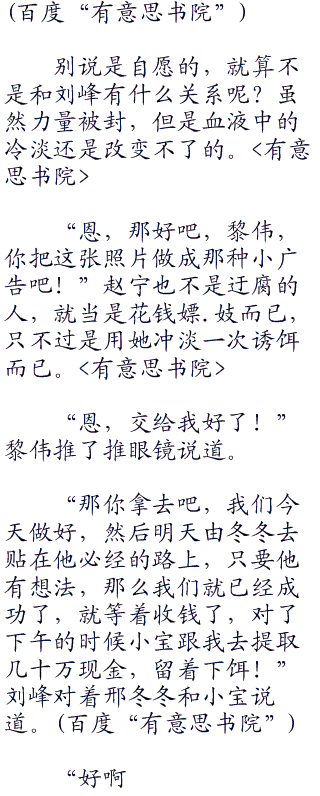 (百度“有意思书院”)
别说是自愿的，就算不
是和刘峰有什么关系呢？虽
然力量被封，但是血液中的
冷淡还是改变不了的。<有意
思书院>
“恩，那好吧，黎伟，
你把这张照片做成那种小广
告吧！”赵宁也不是迂腐的
人，就当是花钱嫖.妓而已，
只不过是用她冲淡一次诱饵
而已。<有意思书院>
“恩，交给我好了！”
黎伟推了推眼镜说道。
“那你拿去吧，我们今
天做好，然后明天由冬冬去
贴在他必经的路上，只要他
有想法，那么我们就已经成
功了，就等着收钱了，对了
下午的时候小宝跟我去提取
几十万现金，留着下饵！”
刘峰对着邢冬冬和小宝说
道。(百度“有意思书院”)
“好啊